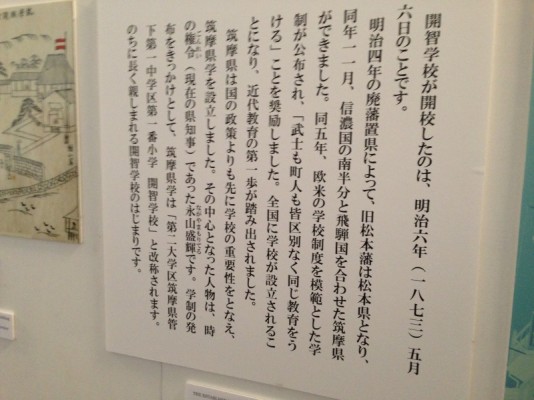 開智学校が開校したのは、明治六年（一八七三）五月
六日のことです。
明治四年の廃藩置県によって、旧松本藩は松本県となり、
同年一一月、信濃国の南半分と飛騨国を合わせた筑摩県
ができました。同五年、欧米の学校制度を模範とした学
制が公布され、「武士も町人も皆区別なく同じ教育をう
ける」ことを奨励しました。全国に学校が設立されるこ
とになり、近代教育の第一歩が踏み出されました。
筑摩県は国の政策よりも先に学校の重要性をとなえ、
筑摩県学を設立しました。その中心となった人物は、時
の権令（現在の県知事）であった永山盛輝です。学制の発
布をきっかけとして、筑摩県学は「第二大学区筑摩県管
下第一中学区第一番小学　開智学校」と改称されます。
のちに長く親しまれる開智学校のはじまりです。